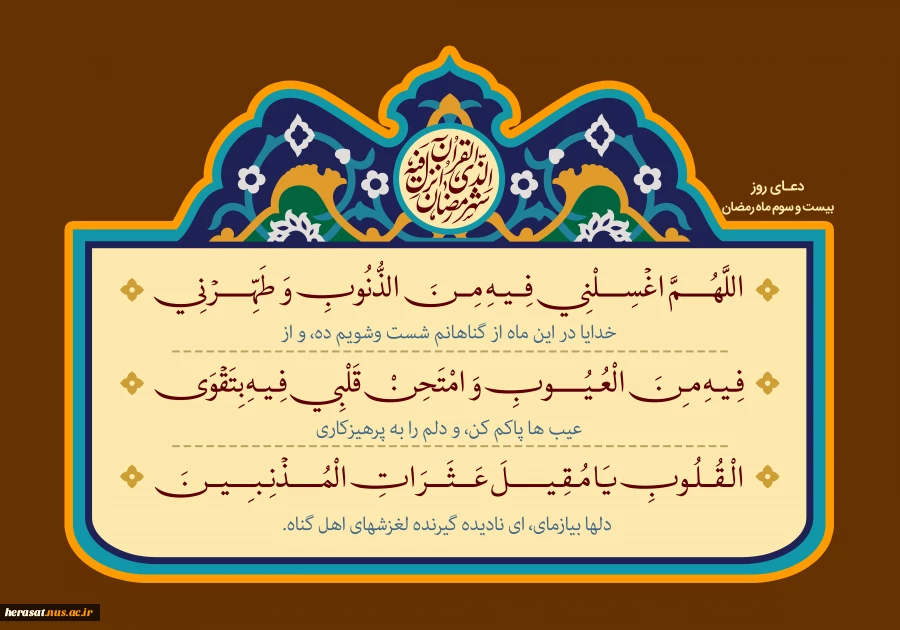 شهر رمضان
الذی انزل فیه
القرآن
دعـای روز
بیست و سوم ماه رمضان
اللَّهُمَّ اغْسِلْنِي فِيهِ مِنَ الذُّنُوبِ وَ طَهِّرْنِي
خدایا در این ماه از گناهانم شست وشویم ده، و از
فِيهِ مِنَ الْعُيُوبِ وَ امْتَحِنْ قَلْبِي فِيهِ بِتَقْوَى
عیب ها پاکم کن، و دلم را به پرهیزکاری
الْقُلُوبِ يَا مُقِيلَ عَثَرَاتِ الْمُذْنِبِينَ
دلها بیازمای، ای نادیده گیرنده لغزشهای اهل گناه.
herasat.nus.ac.ir